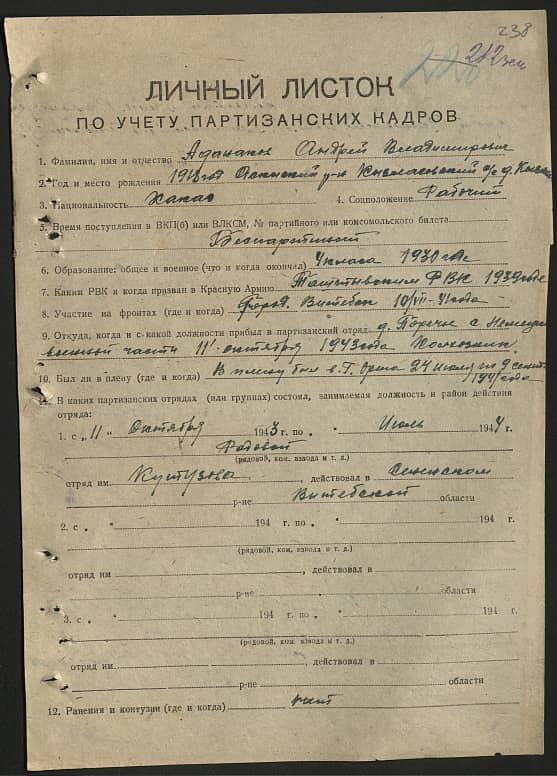 238
212
ЛИЧНЫЙ ЛИСТОК
ПО УЧЕТУ ПАРТИЗАНСКИХ КАДРОВ
1. Фамилия, имя и отчество Аданаков Андрей Владимирович
2. Год и место рождения 1918 год Аскизский р-н с/с д.
3. Национальность Хакас 4. Соцположение Рабочий
5. Время поступления в ВКП(б) или ВЛКСМ, № партийного или комсомольского билета
Беспартийный
6. Образование: общее и военное (что и когда окончил) 4 класа 1930 годе
7. Каким РВК и когда призван в Красную Армию Таштыпским РВК 1939 годе
8. Участие на фронтах (где и когда) Город. Витебск 10/VII-41 года
9. Откуда, когда и с какой должности прибыл в партизанский отряд д. Поречье с Немецкой
военной части 11 октября 1943 года
10. Был ли в плену (где и когда) В плену был в. Г. Орша 24 июля по 9 сент.
1941 года
11. В каких партизанских отрядах (или группах) состоял, занимаемая должность и район действия
отряда:
1. с „11" Октября 1943 г. по " Июль 1944 г.
Рядовой
(рядовой, ком. взвода и т. д.)
отряд им. Кутузова, действовал в Сененском
р-не Витебской области
2. с " 194 г. по " 194 г.
(рядовой, ком. взвода и т. д.)
отряд им., действовал в
р-не области
3. с " 194 г. по " 194 г.
(рядовой, ком. взвода и т. д.)
отряд им., действовал в
р-не области
12. Ранения и контузии (где и когда) нет